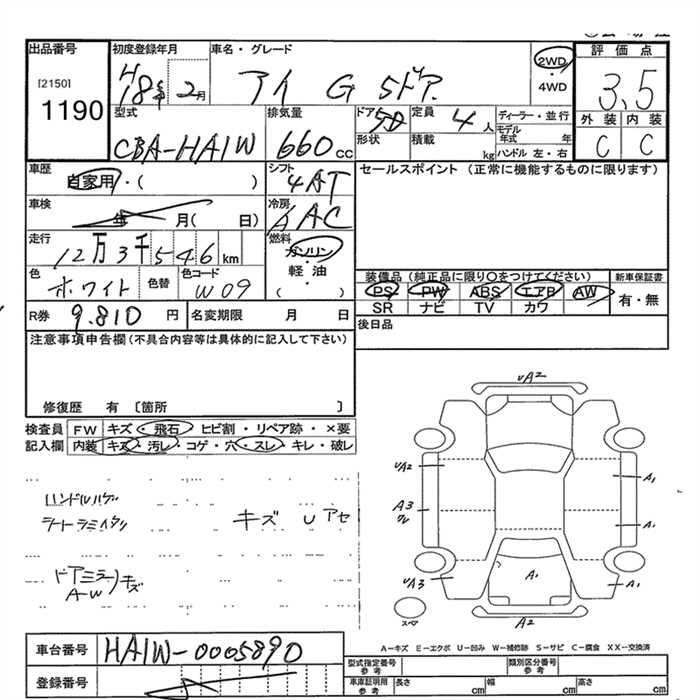 出品番号
[2150]
1190
初度登録年月
H18年 2月
車名・グレード
アイ G 5ドア
2WD
・
4WD
評価点
3.5
外装 内装
C C
型式
CBA-HA1W
排気量
660cc
ドア 5D
形状
定員 4人
積載 kg
ディーラー・並行
モデル年式 年
ハンドル 左・右
車歴
自家用・( )
シフト
4AT
セールスポイント (正常に機能するものに限ります)
車検
年 月( 日)
冷房
AAC
走行
12万3千546km
燃料
ガソリン
・
軽・油
・
( )
色
ホワイト
色替
色コード
W09
装備品 (純正品に限り○をつけてください)
PS PW ABS エアB AW
SR ナビ TV カワ
新車保証書
有・無
R券 9.810 円
名変期限 月 日
後日品
注意事項申告欄(不具合内容等は具体的に記入して下さい)
修復歴 有 〔箇所 〕
検査員
記入欄
FW キズ・飛石・ヒビ割・リペア跡・×要
内装 キズ・汚レ・コゲ・穴・スレ・キレ・破レ
ハンドルハゲ
シートシミ
キズ U アセ
ドアミラー
A-W
キズ
UA2
UA2
A1
A3
A1
UA3
A1
A1
スペア
A2
A-キズ E-エクボ U-凹み W-補修跡 S-サビ C-腐食 XX-交換済
車台番号
HA1W-0005890
登録番号
型式指定番号
参考
類別区分番号
参考
車庫証明用
参考
長さ cm
幅 cm
高さ cm